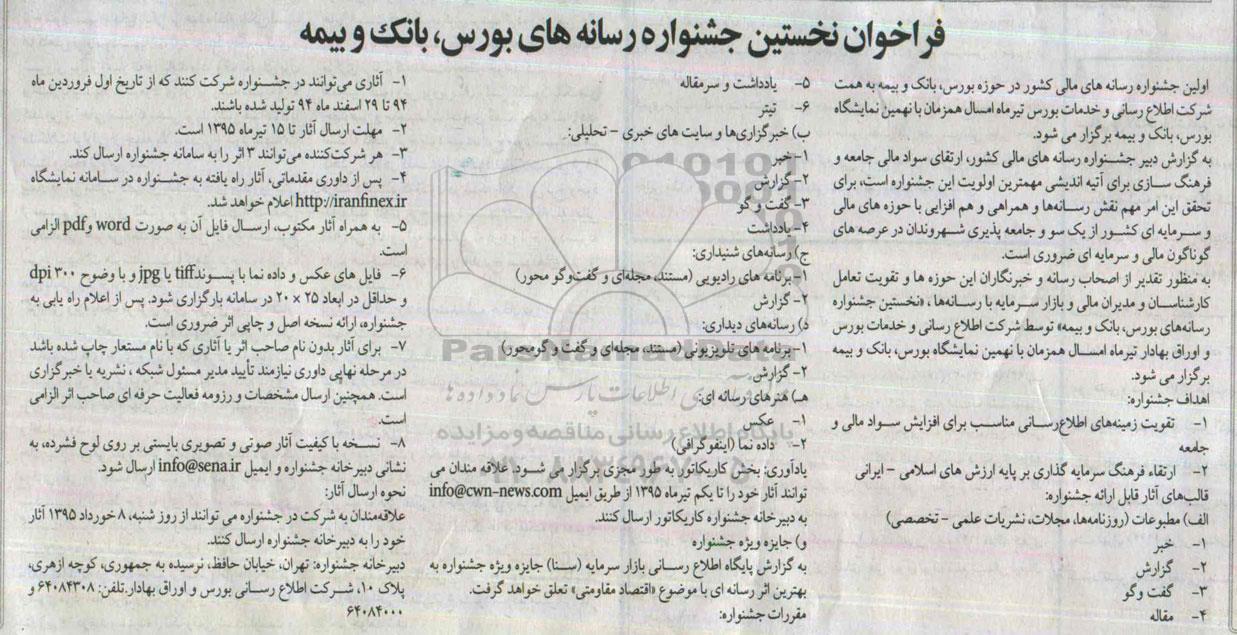 فراخوان نخستین جشنواره رسانه های بورس، بانک و بیمه
اولین جشنواره رسانه های مالی کشور در حوزه بورس، بانک و بیمه به همت
شرکت اطلاع رسانی و خدمات بورس تیرماه امسال همزمان با نهمین نمایشگاه
بورس، بانک و بیمه برگزار می شود.
به گزارش دبیر جشنواره رسانه های مالی کشور، ارتقای سواد مالی جامعه و
فرهنگ سازی برای آتیه اندیشی مهمترین اولویت این جشنواره است، برای
تحقق این امر مهم نقش رسانه‌ها و همراهی و هم افزایی با حوزه های مالی
و سرمایه ای کشور از یک سو و جامعه پذیری شهروندان در عرصه های
گوناگون مالی و سرمایه ای ضروری است.
به منظور تقدیر از اصحاب رسانه و خبرنگاران این حوزه ها و تقویت تعامل
کارشناسان و مدیران مالی و بازار سرمایه با رسانه‌ها، «نخستین جشنواره
رسانه‌های بورس، بانک و بیمه» توسط شرکت اطلاع رسانی و خدمات بورس
و اوراق بهادار تیرماه امسال همزمان با نهمین نمایشگاه بورس، بانک و بیمه
برگزار می شود.
اهداف جشنواره:
۱- تقویت زمینه‌های اطلاع‌رسانی مناسب برای افزایش سواد مالی و
جامعه
۲- ارتقاء فرهنگ سرمایه گذاری بر پایه ارزش های اسلامی – ایرانی
قالب‌های آثار قابل ارائه جشنواره:
الف) مطبوعات (روزنامه‌ها، مجلات، نشریات علمی – تخصصی)
۱- خبر
۲- گزارش
۳- گفت وگو
۴- مقاله
۵- یادداشت و سرمقاله
۶- تیتر
ب) خبرگزاری‌ها و سایت های خبری – تحلیلی:
۱- خبر
۲- گزارش
۳- گفت و گو
۴- یادداشت
ج) رسانه‌های شنیداری:
۱- برنامه های رادیویی (مستند، مجله‌ای و گفت‌وگو محور)
۲- گزارش
د) رسانه‌های دیداری:
۱- برنامه های تلویزیونی (مستند، مجله‌ای و گفت و گومحور)
۲- گزارش
هـ) هنرهای رسانه ای:
۱- عکس
۲- داده نما (اینفوگرافی)
یادآوری: بخش کاریکاتور به طور مجزی برگزار می شود. علاقه مندان می
توانند آثار خود را تا یکم تیرماه ۱۳۹۵ از طریق ایمیل info@cwn-news.com
به دبیرخانه جشنواره کاریکاتور ارسال کنند.
و) جایزه ویژه جشنواره
به گزارش پایگاه اطلاع رسانی بازار سرمایه (سنا) جایزه ویژه جشنواره به
بهترین اثر رسانه ای با موضوع «اقتصاد مقاومتی» تعلق خواهد گرفت.
مقررات جشنواره:
۱- آثاری می‌توانند در جشنواره شرکت کنند که از تاریخ اول فروردین ماه
۹۴ تا ۲۹ اسفند ماه ۹۴ تولید شده باشند.
۲- مهلت ارسال آثار تا ۱۵ تیرماه ۱۳۹۵ است.
۳- هر شرکت‌کننده می‌توانند ۳ اثر را به سامانه جشنواره ارسال کند.
۴- پس از داوری مقدماتی، آثار راه یافته به جشنواره در سامانه نمایشگاه
http://iranfinex.ir اعلام خواهد شد.
۵- به همراه آثار مکتوب، ارسال فایل آن به صورت word وpdf الزامی
است.
۶- فایل های عکس و داده نما با پسوندtiff یا jpg و با وضوح ۳۰۰ dpi
و حداقل در ابعاد ۲۵ × ۲۰ در سامانه بارگزاری شود. پس از اعلام راه یابی به
جشنواره، ارائه نسخه اصل و چاپی اثر ضروری است.
۷- برای آثار بدون نام صاحب اثر یا آثاری که با نام مستعار چاپ شده باشد
در مرحله نهایی داوری نیازمند تأیید مدیر مسئول شبکه، نشریه یا خبرگزاری
است. همچنین ارسال مشخصات و رزومه فعالیت حرفه ای صاحب اثر الزامی
است.
۸- نسخه با کیفیت آثار صوتی و تصویری بایستی بر روی لوح فشرده، به
نشانی دبیرخانه جشنواره و ایمیل info@sena.ir ارسال شود.
نحوه ارسال آثار:
علاقه‌مندان به شرکت در جشنواره می توانند از روز شنبه، ۸ خرداد ۱۳۹۵ آثار
خود را به دبیرخانه جشنواره ارسال کنند.
دبیرخانه جشنواره: تهران، خیابان حافظ، نرسیده به جمهوری، کوچه ازهری،
پلاک ۱۰، شرکت اطلاع رسانی بورس و اوراق بهادار.تلفن: ۶۴۰۸۴۳۰۸ و
۶۴۰۸۴۰۰۰
ParsNamadData
پایگاه اطلاع رسانی مناقصه و مزایده